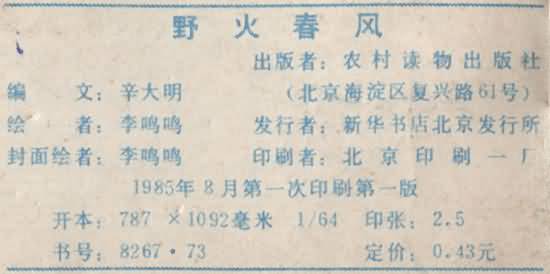 野火春风
出版者：农村读物出版社
编文：辛大明 （北京海淀区复兴路61号）
绘者：李鸣鸣 发行者：新华书店北京发行所
封面绘者：李鸣鸣 印刷者：北京印刷一厂
1985年8月第一次印刷第一版
开本：787×1092毫米 1/64 印张：2.5
书号：8267·73 定价：0.43元